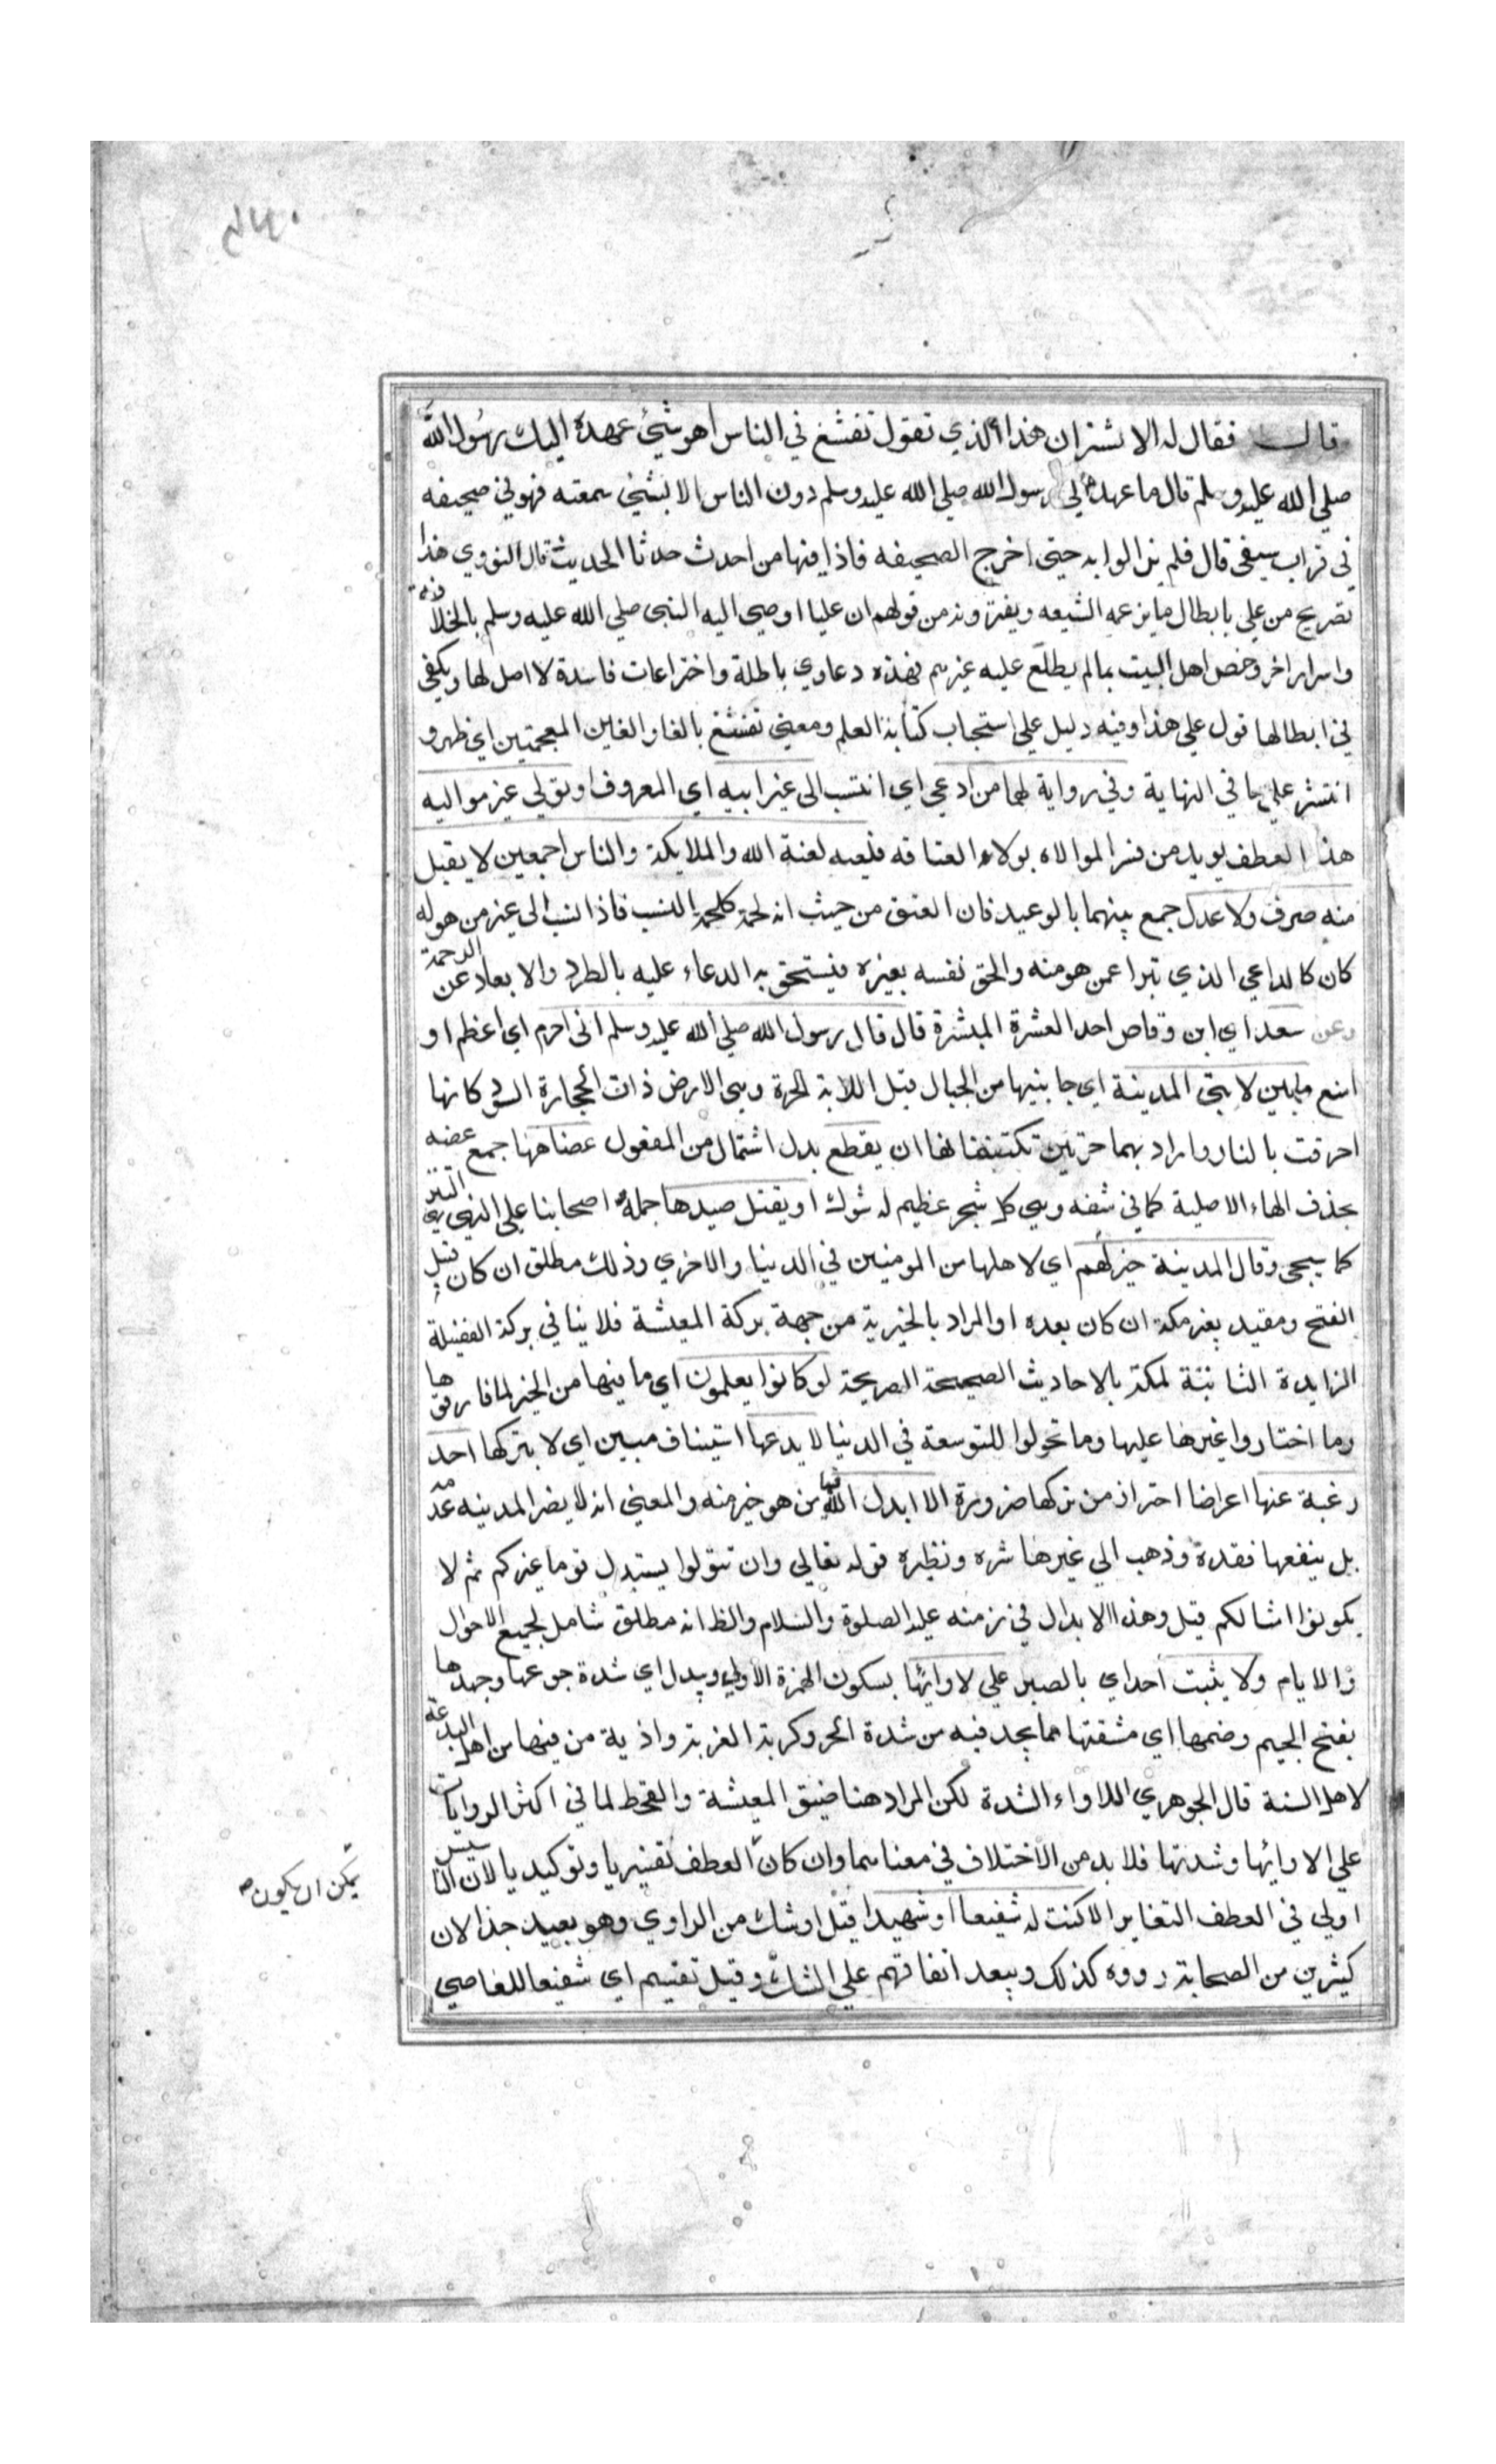 قال فقال له الاشتران هذا الذي تقول تفشغ في الناس اهو شيء عهده اليك رسول الله
صلي الله عليه وسلم قال ما عهد الي رسول الله صلي الله عليه وسلم دون الناس الا بشئ سمعته فهو في صحيفه
في قراب سيفي قال فلم يزالوا به حتي اخرج الصحيفه فاذا فيها من احدث حدثا الحديث قال النووي هذا
تصريح من علي بابطال ما يزعمه الشيعه ويفترونه من قولهم ان عليا اوصي اليه النبي صلي الله عليه وسلم بالخلافة
واسرار اخر وخص اهل البيت بما لم يطلع عليه غيرهم فهذه دعاوي باطلة واختراعات فاسدة لا اصل لها ويكفي
في ابطالها قول علي هذا وفيه دليل علي استحباب كتابة العلم ومعني تفشغ بالفا والغاين المعجمتين اي ظهر و
انتشر علي ما في النهاية وفي رواية لهما من ادعي اي انتسب الى غير ابيه اي المعروف او تولي غير مواليه
هذا العطف يويد من فسر الموالاه بولاء العتاقه فعليه لعنة الله والملايكة والناس اجمعين لا يقبل
منه صرف ولا عدل جمع بينهما بالوعيد فان العتق من حيث انه لحمة كلحمة النسب فاذا نسب الى غير من هو له
كان كالداعي الذي تبرا عمن هو منه والحق نفسه بغيره فيستحق به الدعاء عليه بالطرد والابعاد عن الرحمة
وعن سعد اي ابن وقاص احد العشرة المبشرة قال قال رسول الله صلي الله عليه وسلم اني احرم اي اعظم او
امنع ما بين لابتي المدينة اي جانبيها من الجبال قيل اللابة الحرة وهي الارض ذات الحجارة السود كانها
احرقت بالنار واراد بهما حرتين تكتنفانها ان يقطع بدل اشتمال من المفعول عضاهها جمع عضه
بحذف الهاء الاصلية كما في شفه وهي كل شجر عظيم له شوك او يقتل صيدها حمله اصحابنا علي النهي التنزيهي
كما سيجي وقال المدينة خير لهم اي لاهلها من المومنين في الدنيا والاخري وذلك مطلق ان كان قبل
الفتح ومقيد بغير مكة ان كان بعده او المراد بالخيرية من جهة بركة المعيشة فلا ينافي بركة الفضيلة
الزايدة الثابتة لمكة بالاحاديث الصحيحة الصريحة لو كانوا يعلمون اي ما فيها من الخير لما فارقوها
وما اختاروا غيرها عليها وما تحولوا للتوسعة في الدنيا لا يدعها استيناف مبين اي لا يتركها احد
رغبة عنها اعراضا احتراز من تركها ضرورة الا ابدل الله فيها من هو خير منه والمعني انه لا يضر المدينه عدمه
بل ينفعها فقده وذهب الي غيرها شره ونظيره قوله تعالي وان تتولوا يستبدل قوما غيركم ثم لا
يكونوا امثالكم قيل وهذا الابدال في زمنه عليه الصلوة والسلام والظ انه مطلق شامل لجميع الاحوال
والايام ولا يثبت احد اي بالصبر علي لاوائها بسكون الهمزة الاولي ويبدل اي شدة جوعها وجهدها
بفتح الجيم وضمها اي مشقتها مما يجد فيه من شدة الحر وكربة الغربة واذية من فيها من اهل البدعة
لاهل السنة قال الجوهري اللاواء الشدة لكن المراد هنا ضيق المعيشة والقحط لما في اكثر الروايات
علي لاوائها وشدتها فلا بد من الاختلاف في معناهما وان كان العطف تفسيريا وتوكيديا لان التاسيس
يمكن ان يكون
اولي في العطف التغاير الا كنت له شفيعا او شهيدا قيل او شك من الراوي وهو بعيد جدا لان
كثيرين من الصحابة رووه كذلك ويبعد اتفاقهم علي الشك وقيل تقسيم اي شفيعا للعاصي